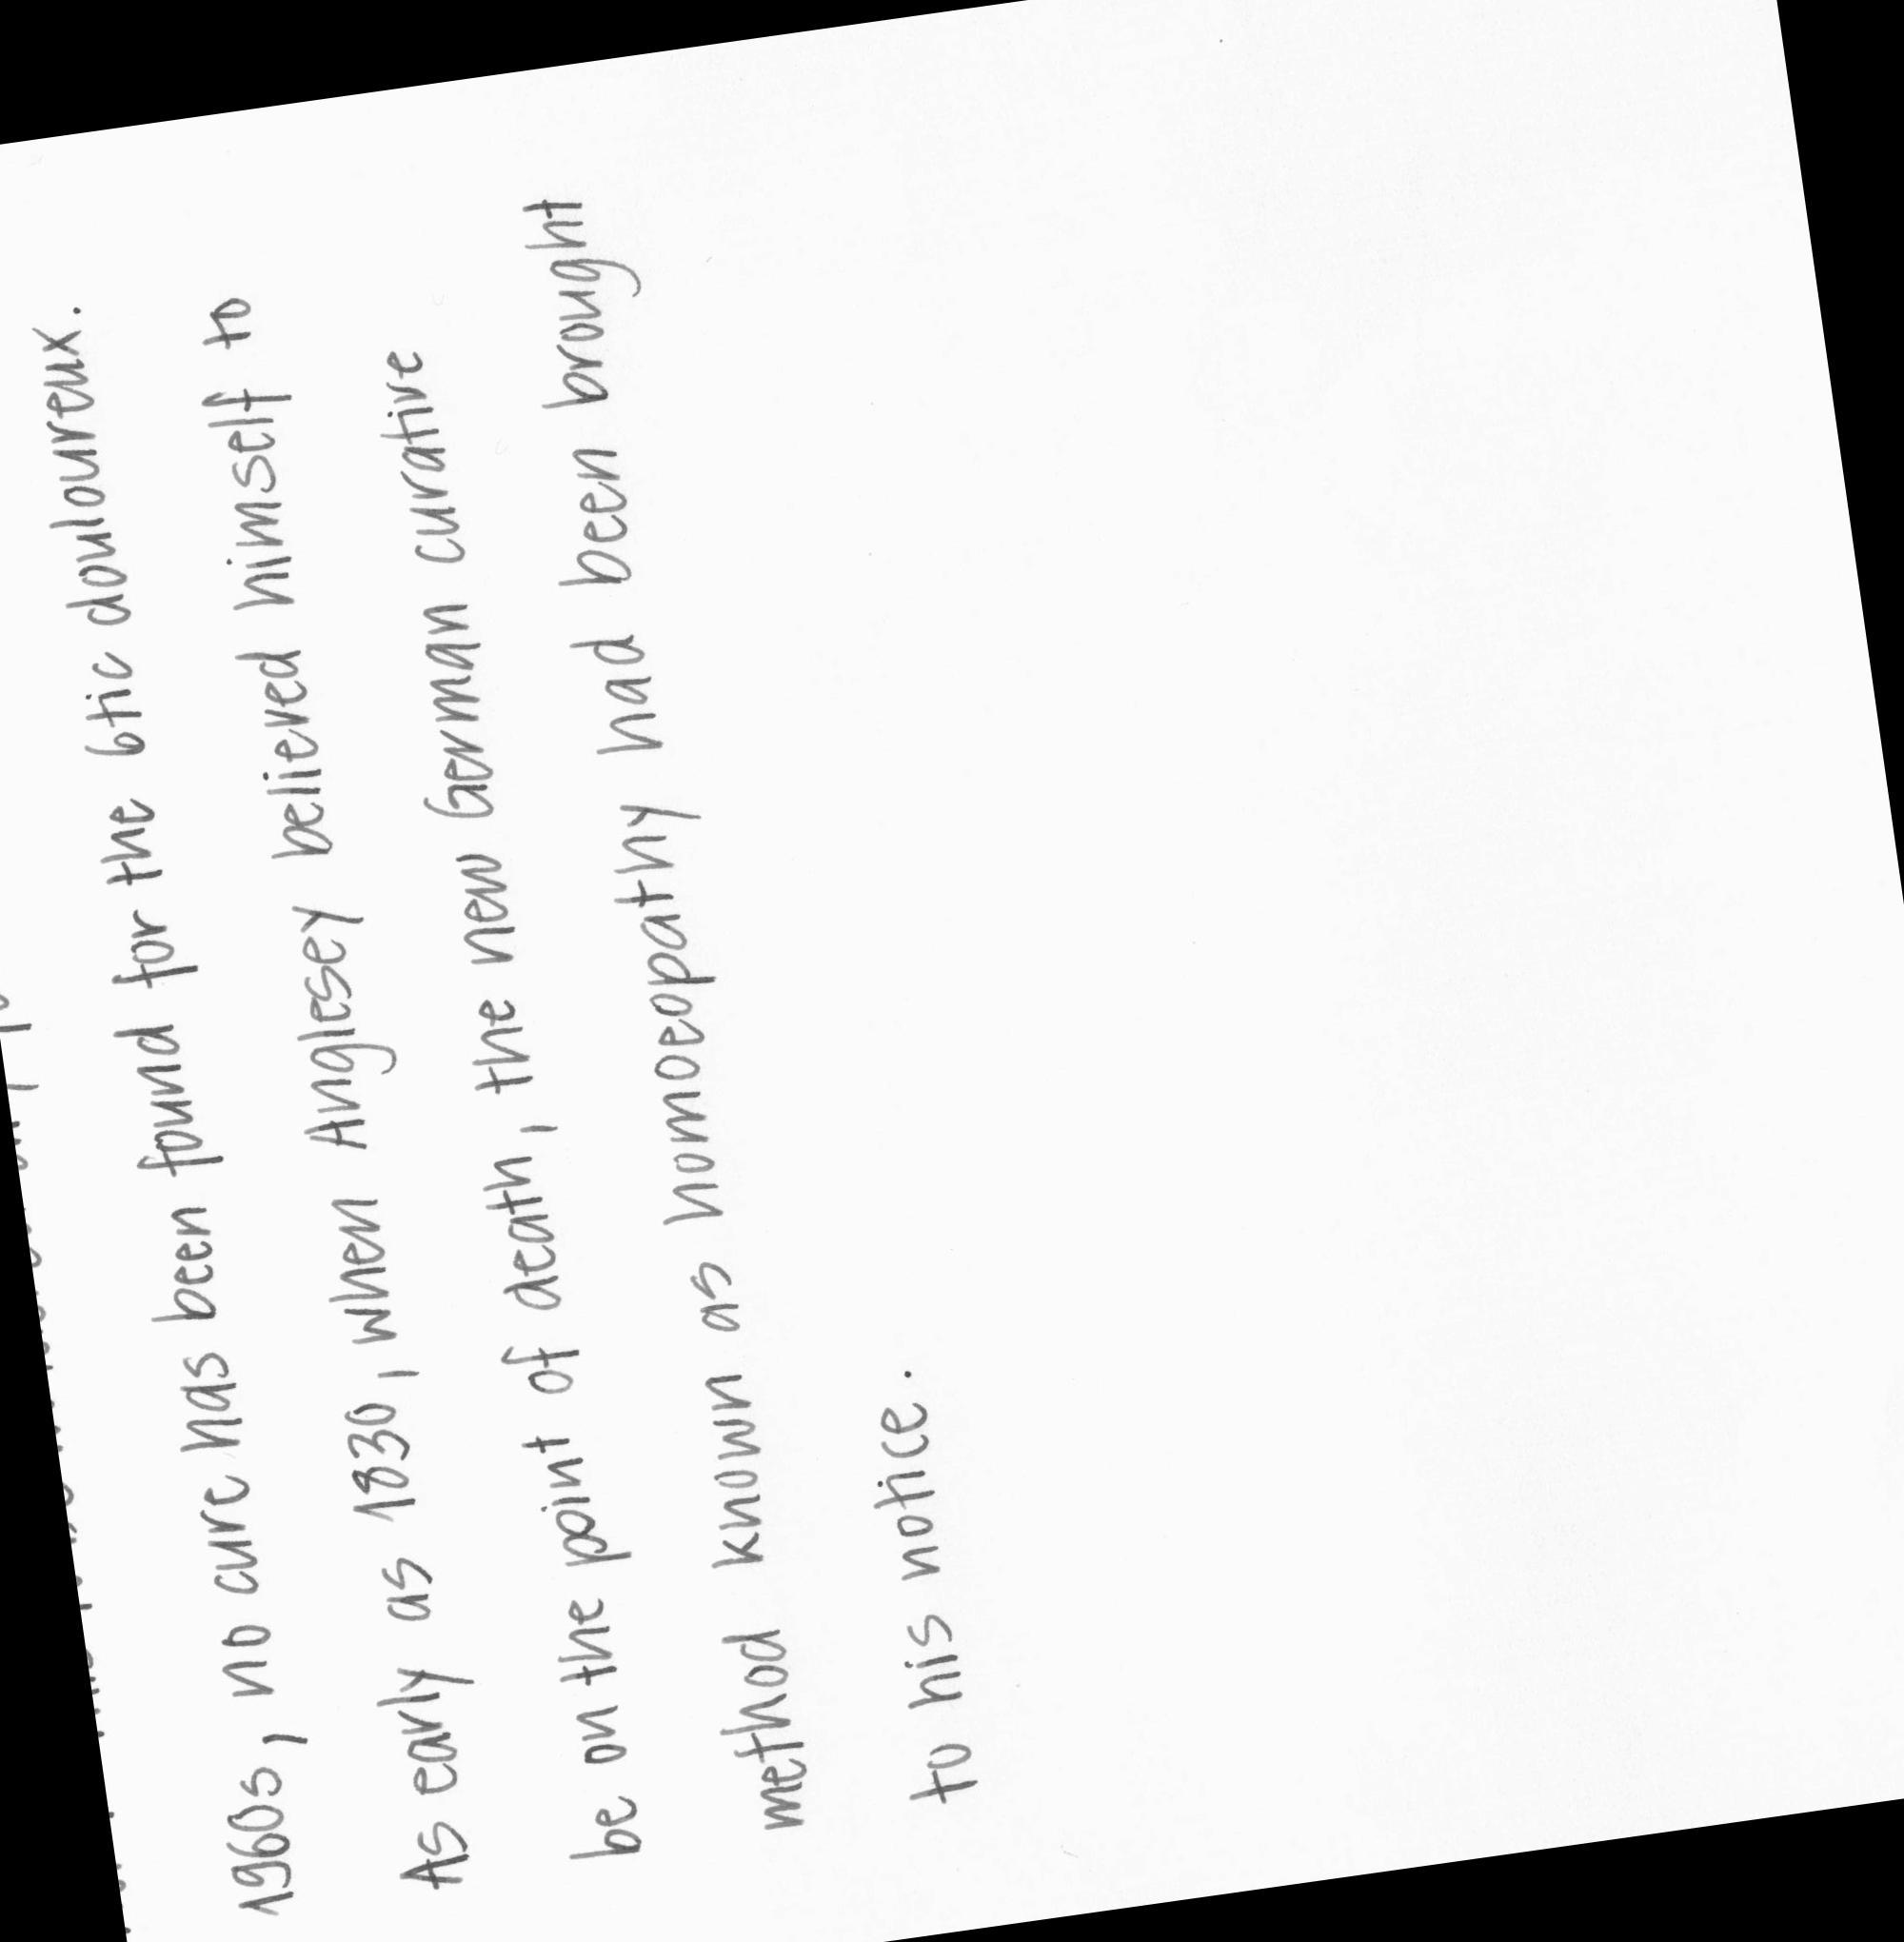 1960s, no cure has been found for the btic douloureux.
As early as 1830, when Anglesey believed himself to
be on the point of death, the new German curative
method known as homoeopathy had been brought
to his notice.